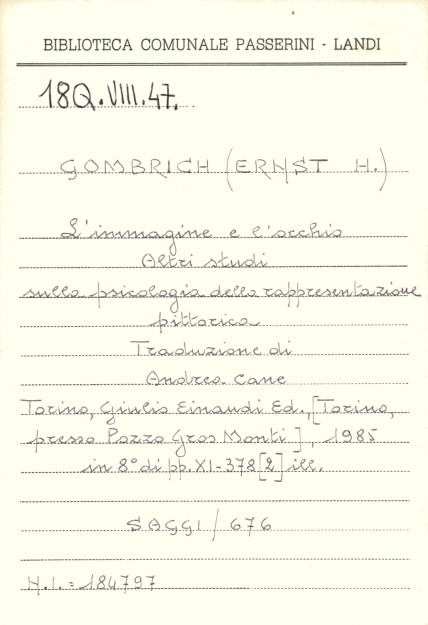 BIBLIOTECA COMUNALE PASSERINI - LANDI
18Q.VIII.47.
GOMBRICH (ERNST H.)
L'immagine e l'occhio
Altri studi
sulla psicologia della rappresentazione
pittorica
Traduzione di
Andrea Cane
Torino, Giulio Einaudi Ed., [Torino,
presso Pozzo Gros Monti], 1985
in 8° di pp. XI-378 [2] ill.
SAGGI / 676
N.I. = 184797